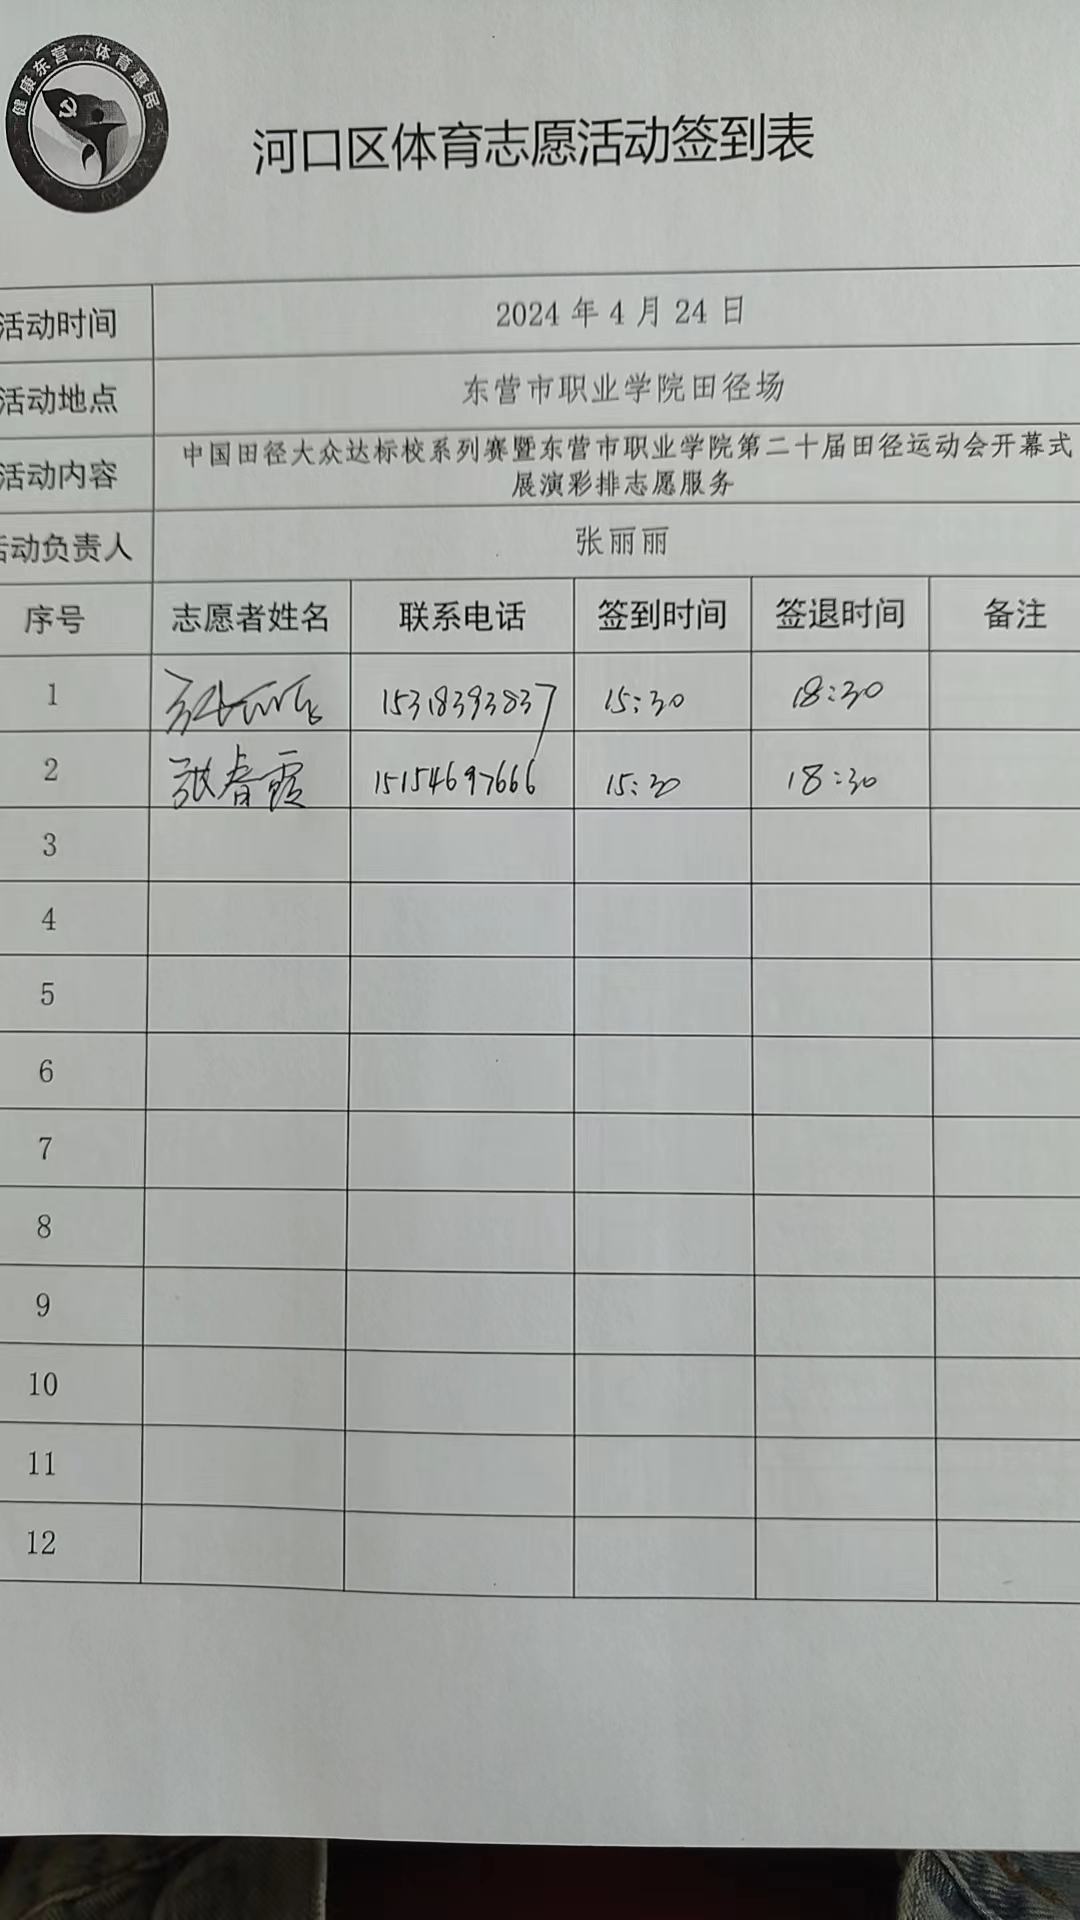 健康东营·体育惠民
河口区体育志愿活动签到表
活动时间 2024年4月24日
活动地点 东营市职业学院田径场
活动内容 中国田径大众达标校系列赛暨东营市职业学院第二十届田径运动会开幕式
展演彩排志愿服务
活动负责人 张丽丽
序号 志愿者姓名 联系电话 签到时间 签退时间 备注
1 张丽丽 15318393837 15:30 18:30
2 张春霞 15154697666 15:30 18:30
3
4
5
6
7
8
9
10
11
12